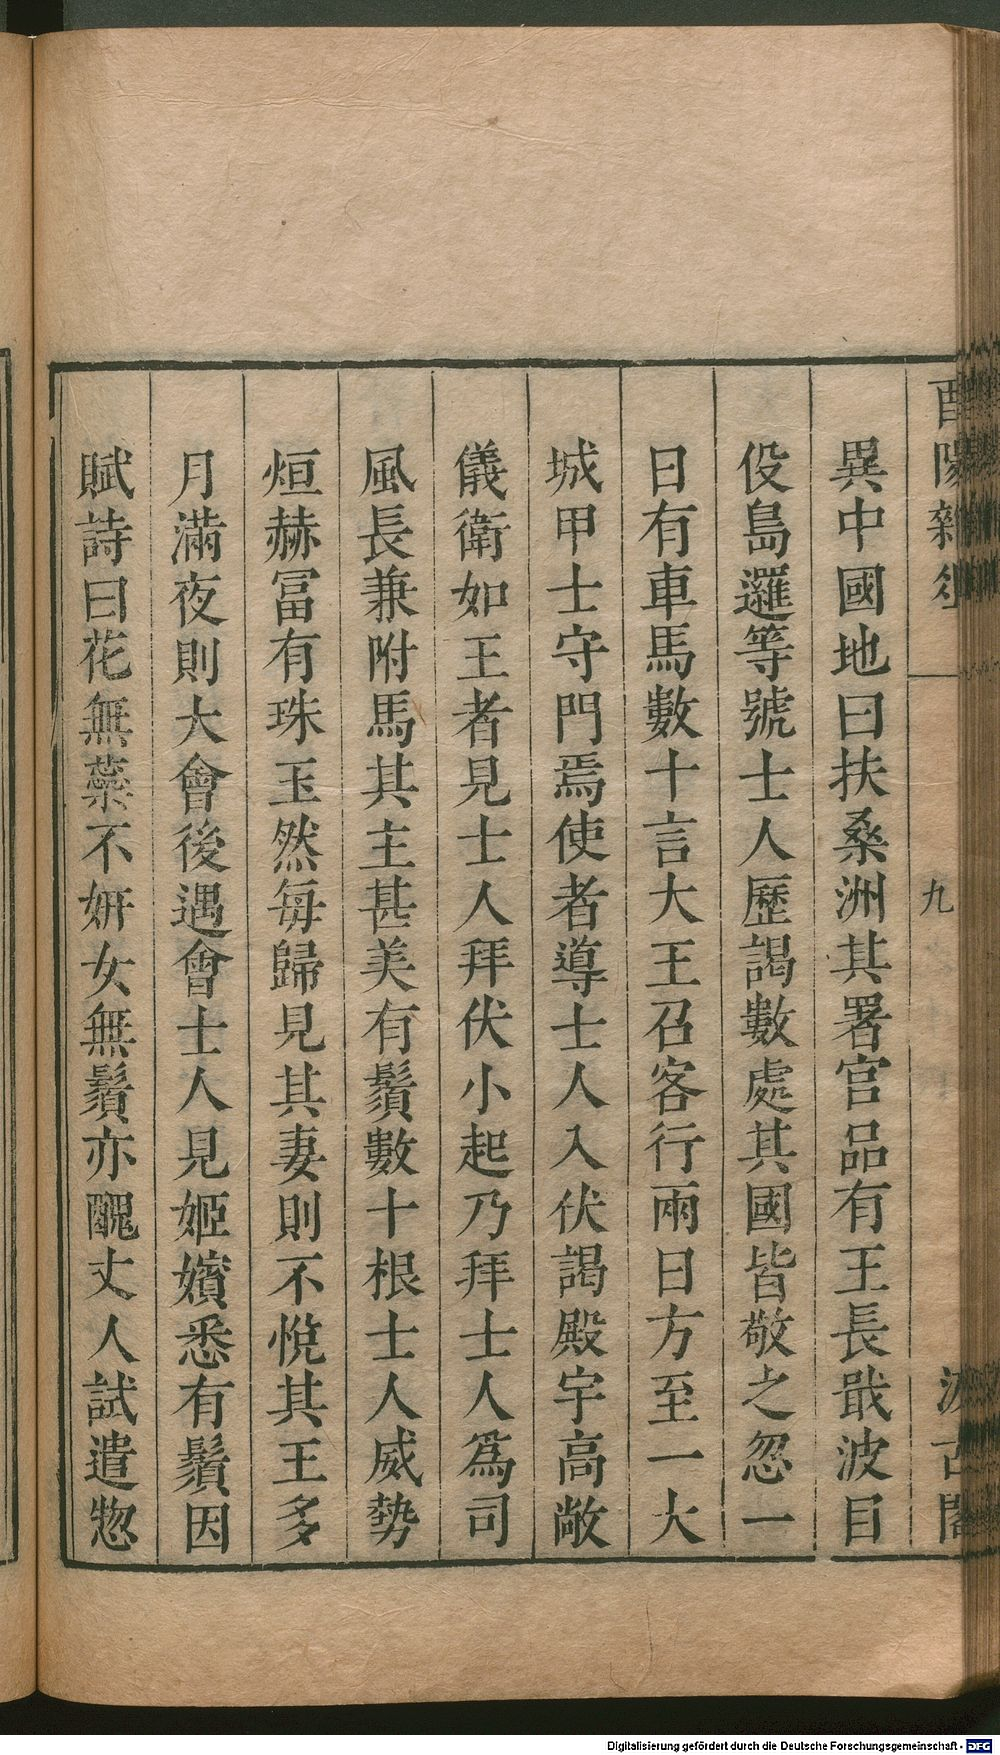 酉陽雜俎
九
汲古閣
異中國地曰扶桑洲其署官品有王長戢波目
役島邏等號士人歷謁數處其國皆敬之忽一
日有車馬數十言大王召客行兩日方至一大
城甲士守門焉使者導士人入伏謁殿宇高敞
儀衛如王者見士人拜伏小起乃拜士人爲司
風長兼附馬其主甚美有鬚數十根士人威勢
烜赫冨有珠玉然每歸見其妻則不悅其王多
月滿夜則大會後遇會士人見姬嬪悉有鬚因
賦詩曰花無蘂不妍女無鬚亦醜丈人試遣惣
Digitalisierung gefördert durch die Deutsche Forschungsgemeinschaft - DFG